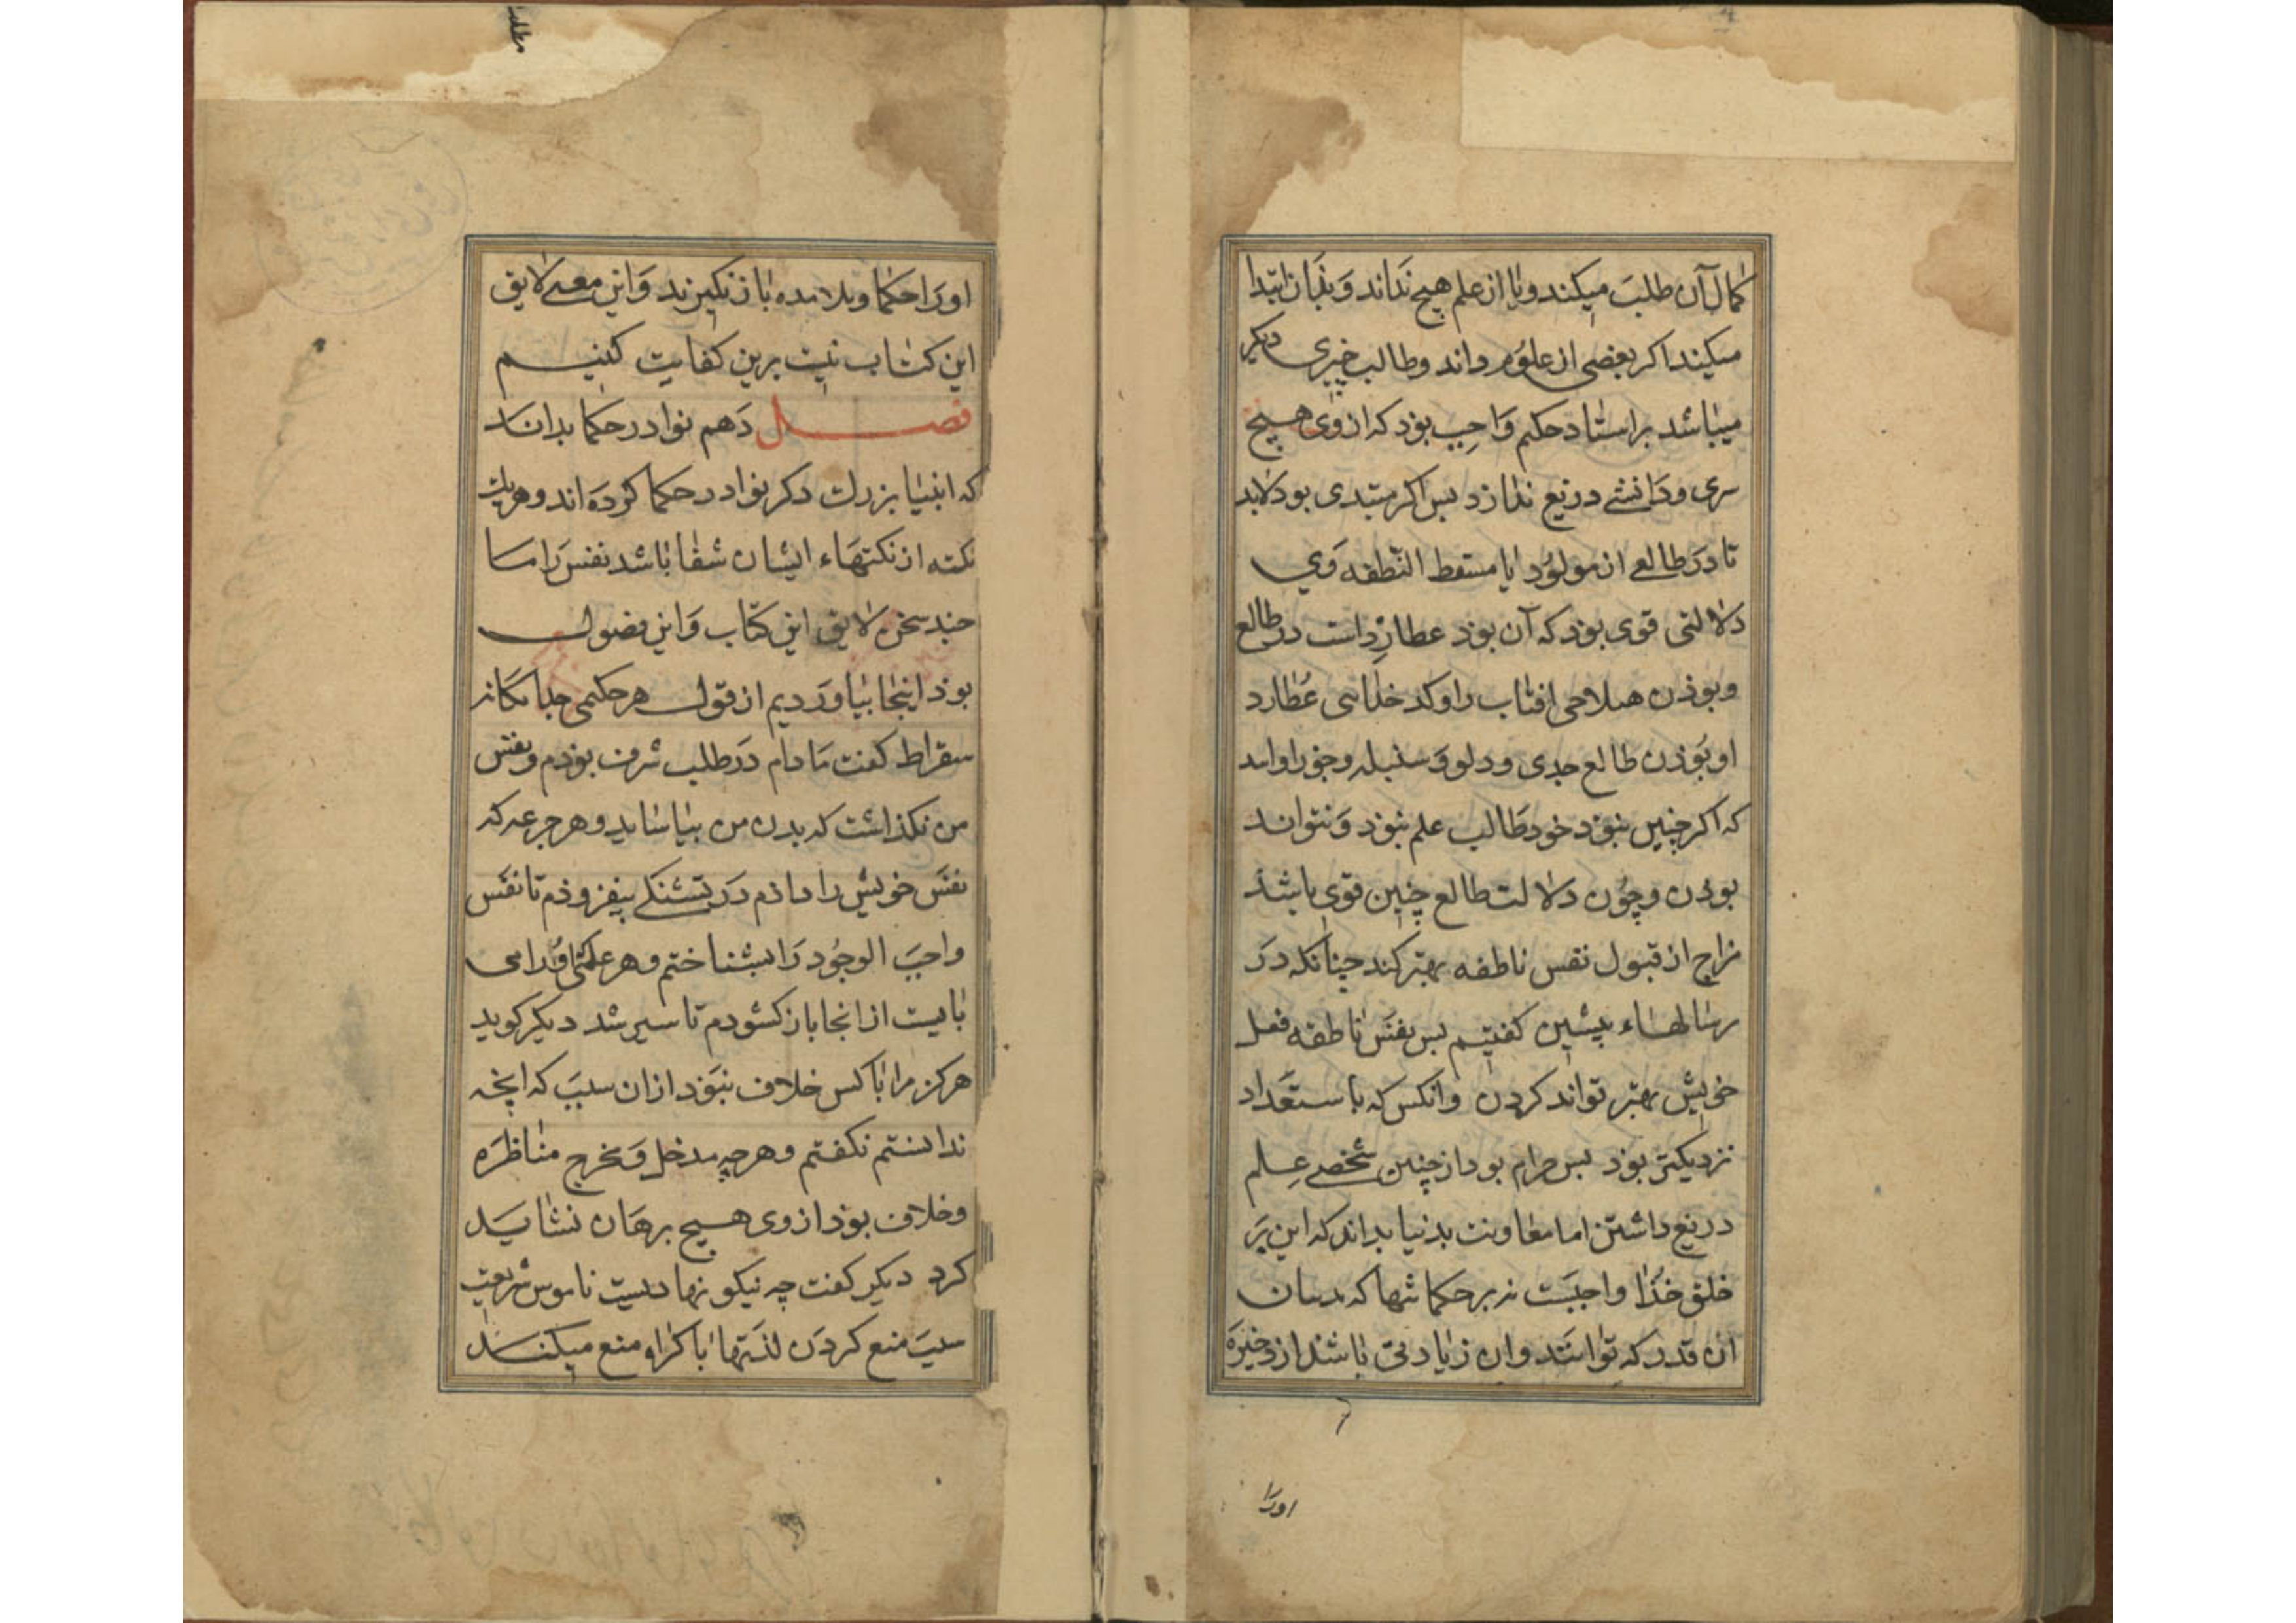 کمال آن طلب میکند و یا از علم هیچ نداند و بذان ابتدا
میکند اکر بعضی از علوم داند و طالب چیزی دیکر
میباشد بر استاد حکیم واجب بوذ که از وی هیچ
سری و دانشی دریغ ندارد بس اکر مبتدی بود لابد
تا در طالع از مولود یا مسقط النطفه وی
دلالتی قوی بوذ که آن بوذ عطارد است در طالع
و بوذن هیلاجی افتاب را و کدخدایی عطارد
او بوذن طالع جدی و دلو و سنبله و جوزا و اسد
که اکر چنین نبوذ خود طالب علم نبوذ و نتواند
بودن و چون دلالت طالع چنین قوی باشذ
مزاج از قبول نفس ناطقه بهتر کند چنانکه در
رسالهاء بیشین کفتیم بس نفس ناطقه فعل
خویش بهتر تواند کردن وانکس که باستعداد
نزدیکتر بوذ بس حرام بود از چنین شخصی علم
دریغ داشتن اما معاونت بدنیا بداند که این بر
خلق خذا واجبست نه بر حکما تنها که بدیشان
ان قدر که توانند وان زیادتی باشد از ذخیره
اورا
اورا حکما و تلامذه باز نکیرند و این معنی لایق
این کتاب نیست برین کفایت کنیم
فصل دهم نوادر حکما بدانک
که انبیا بزرك ذکر نوادر حکما کرده اند و هر یك
نکته از نکتهاء ایشان شفا باشد نفس را ما
چند سخن لایق این کتاب و این فصول
بوذ اینجا بیاوردیم از قول هر حکیمی جداکانه
سقراط کفت مادام در طلب شرف بوذم و نفس
من نکذاشت که بدن من بیاساید و هر جرعه که
نفس خویش را داذم در تشنکی بیفزوذم تا نفس
واجب الوجود را بشناختم و هر علمی اورا می
بایست از انجا باز کشودم تا سیر شد دیکر کوید
هرکز مرا با کس خلاف نبوذ از ان سبب که انچه
ندانستم نکفتم و هر چه مدخل و مخرج مناظره
و خلاف بوذ از وی هیچ برهان نشاید
کرد دیکر کفت چه نیکو نهادیست ناموس شریعت
سبب منع کردن لذتها باکراه منع میکند